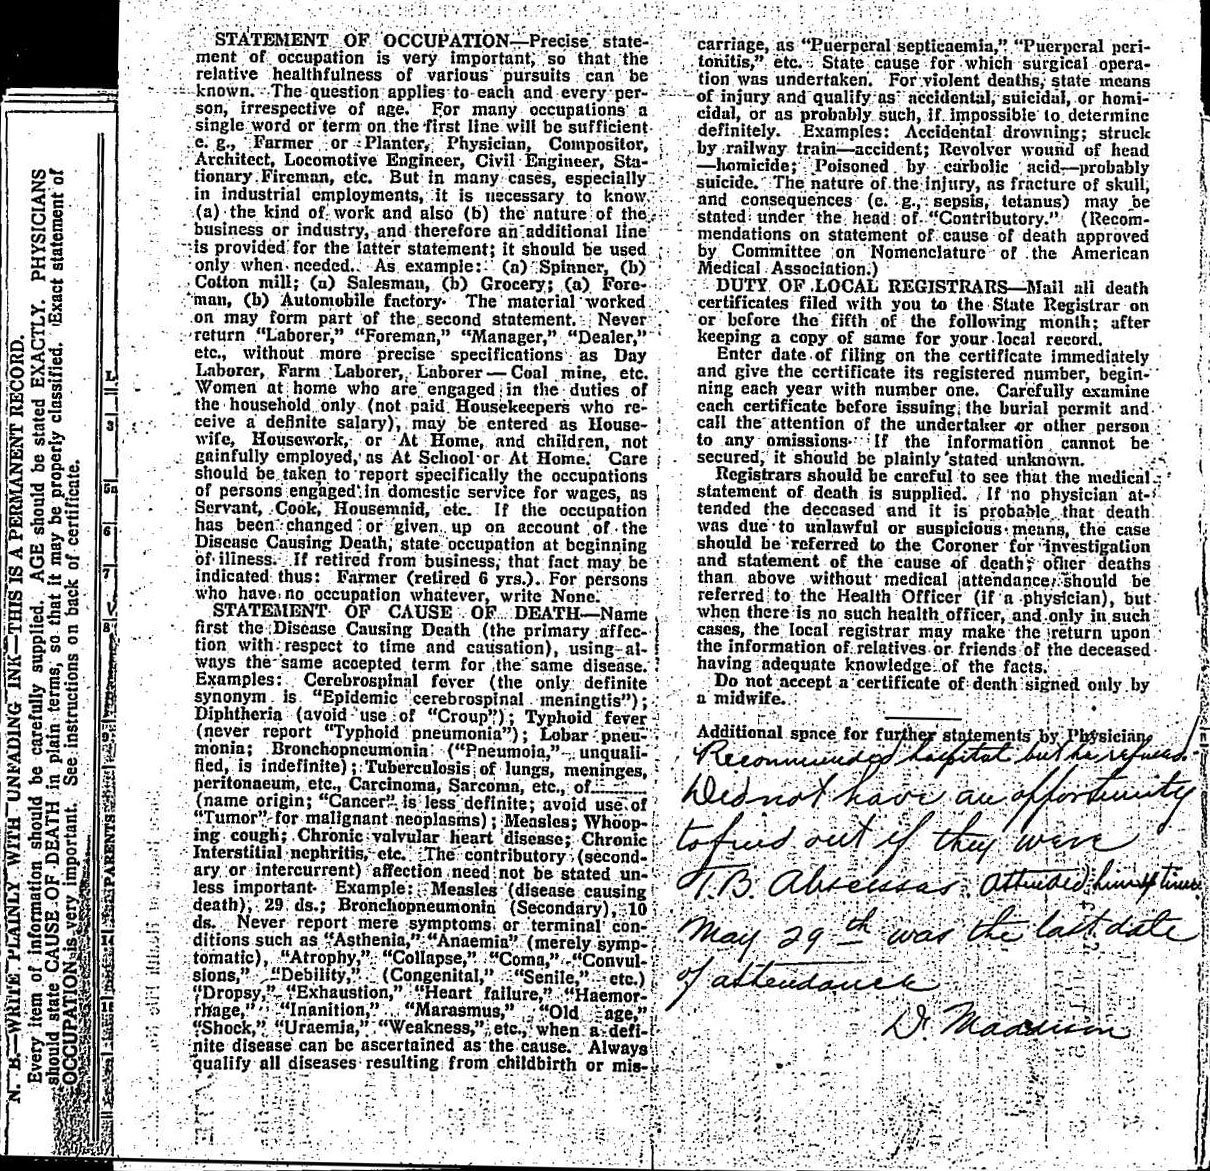 N. B.—WRITE PLAINLY WITH UNFADING INK—THIS IS A PERMANENT RECORD.
Every item of information should be carefully supplied. AGE should be stated EXACTLY. PHYSICIANS
should state CAUSE OF DEATH in plain terms, so that it may be properly classified. Exact statement of
OCCUPATION is very important. See instructions on back of certificate.
PARENTS
STATEMENT OF OCCUPATION—Precise state-
ment of occupation is very important, so that the
relative healthfulness of various pursuits can be
known. The question applies to each and every per-
son, irrespective of age. For many occupations a
single word or term on the first line will be sufficient
e. g., Farmer or Planter, Physician, Compositor,
Architect, Locomotive Engineer, Civil Engineer, Sta-
tionary Fireman, etc. But in many cases, especially
in industrial employments, it is necessary to know
(a) the kind of work and also (b) the nature of the
business or industry, and therefore an additional line
is provided for the latter statement; it should be used
only when needed. As example: (a) Spinner, (b)
Cotton mill; (a) Salesman, (b) Grocery; (a) Fore-
man, (b) Automobile factory. The material worked
on may form part of the second statement. Never
return "Laborer," "Foreman," "Manager," "Dealer,"
etc., without more precise specifications as Day
Laborer, Farm Laborer, Laborer—Coal mine, etc.
Women at home who are engaged in the duties of
the household only (not paid Housekeepers who re-
ceive a definite salary), may be entered as House-
wife, Housework, or At Home, and children, not
gainfully employed, as At School or At Home. Care
should be taken to report specifically the occupations
of persons engaged in domestic service for wages, as
Servant, Cook, Housemaid, etc. If the occupation
has been changed or given up on account of the
Disease Causing Death, state occupation at beginning
of illness. If retired from business, that fact may be
indicated thus: Farmer (retired 6 yrs.). For persons
who have no occupation whatever, write None.
STATEMENT OF CAUSE OF DEATH—Name
first the Disease Causing Death (the primary affec-
tion with respect to time and causation), using al-
ways the same accepted term for the same disease.
Examples: Cerebrospinal fever (the only definite
synonym is "Epidemic cerebrospinal meningtis");
Diphtheria (avoid use of "Croup"); Typhoid fever
(never report "Typhoid pneumonia"); Lobar pneu-
monia; Bronchopneumonia ("Pneumoia," unquali-
fied, is indefinite); Tuberculosis of lungs, meninges,
peritonaeum, etc., Carcinoma, Sarcoma, etc., of
(name origin; "Cancer" is less definite; avoid use of
"Tumor" for malignant neoplasms); Measles; Whoop-
ing cough; Chronic valvular heart disease; Chronic
Interstitial nephritis, etc. The contributory (second-
ary or intercurrent) affection need not be stated un-
less important. Example: Measles (disease causing
death), 29 ds.; Bronchopneumonia (Secondary), 10
ds. Never report mere symptoms or terminal con-
ditions such as "Asthenia," "Anaemia" (merely symp-
tomatic), "Atrophy," "Collapse," "Coma," "Convul-
sions," "Debility," (Congenital," "Senile," etc.)
"Dropsy," "Exhaustion," "Heart failure," "Haemor-
rhage," "Inanition," "Marasmus," "Old age,"
"Shock," "Uraemia," "Weakness," etc., when a defi-
nite disease can be ascertained as the cause. Always
qualify all diseases resulting from childbirth or mis-
carriage, as "Puerperal septicaemia," "Puerperal peri-
tonitis," etc. State cause for which surgical opera-
tion was undertaken. For violent deaths, state means
of injury and qualify as accidental, suicidal, or homi-
cidal, or as probably such, if impossible to determine
definitely. Examples: Accidental drowning; struck
by railway train—accident; Revolver wound of head
—homicide; Poisoned by carbolic acid—probably
suicide. The nature of the injury, as fracture of skull,
and consequences (e. g., sepsis, tetanus) may be
stated under the head of "Contributory." (Recom-
mendations on statement of cause of death approved
by Committee on Nomenclature of the American
Medical Association.)
DUTY OF LOCAL REGISTRARS—Mail all death
certificates filed with you to the State Registrar on
or before the fifth of the following month; after
keeping a copy of same for your local record.
Enter date of filing on the certificate immediately
and give the certificate its registered number, begin-
ning each year with number one. Carefully examine
each certificate before issuing the burial permit and
call the attention of the undertaker or other person
to any omissions. If the information cannot be
secured, it should be plainly stated unknown.
Registrars should be careful to see that the medical
statement of death is supplied. If no physician at-
tended the deceased and it is probable that death
was due to unlawful or suspicious means, the case
should be referred to the Coroner for investigation
and statement of the cause of death; other deaths
than above without medical attendance should be
referred to the Health Officer (if a physician), but
when there is no such health officer, and only in such
cases, the local registrar may make the return upon
the information of relatives or friends of the deceased
having adequate knowledge of the facts.
Do not accept a certificate of death signed only by
a midwife.
Additional space for further statements by Physician.
Recommended hospital but he refused.
Did not have an opportunity
to find out if they were
T.B. Abscesses. Attended him times
May 29th was the last date
of attendance
Dr.